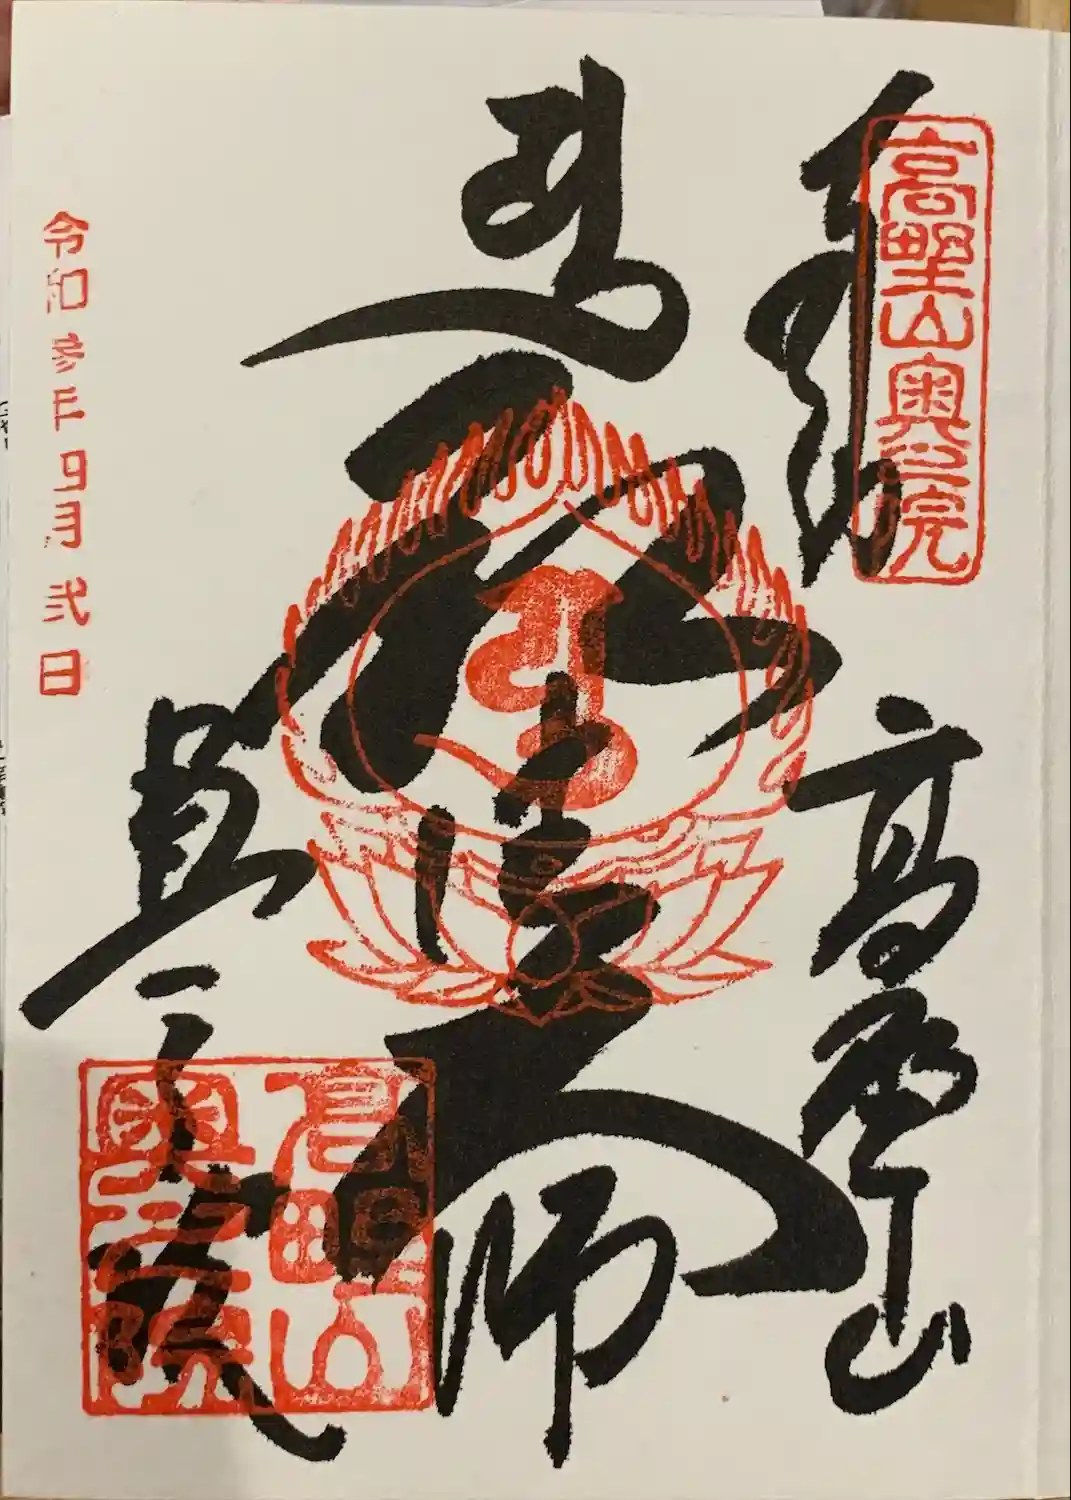 高野山奥之院
高野山
弘法大師
奥之院
高野山
奥之院
令和参年9月弐日